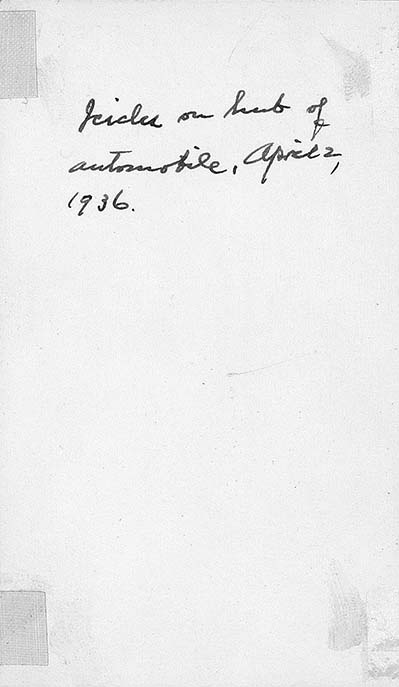 Icicles on hub of
automobile, April 2,
1936.